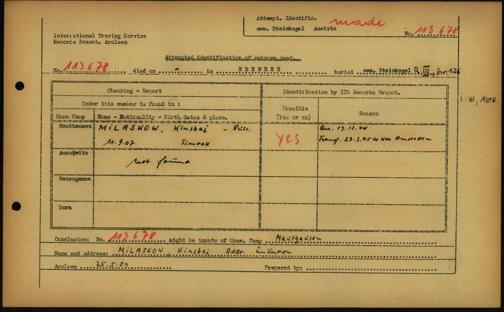 Attempt. Identific. made
cem. Steinkogel Austria No. 113678
International Tracing Service
Records Branch, Arolsen
Attempted identification of unknown dead.
No. 113678 died on - in EBENSEE buried cem. Steinkogel R.III, Gr.126
Checking - Report
Under this number is found in :
Identification by ITS Records Branch.
Conc. Camp Name - Nationality - Birth dates & place.
Possible (Yes or no)
Reason
Mauthausen MILASKOW, Kinsbai - Russ.
11.9.07
YES
Arr. 17.12.44
Transf. 23.3.45 to Kdo Amstetten
Auschwitz not found
Neuengamme
Dora
Conclusion: No. 113678 might be inmate of Conc. Camp Mauthausen
Name and address: MILASKOW Kinsbai Addr. unknown
Arolsen 25.5.50 Prepared by: